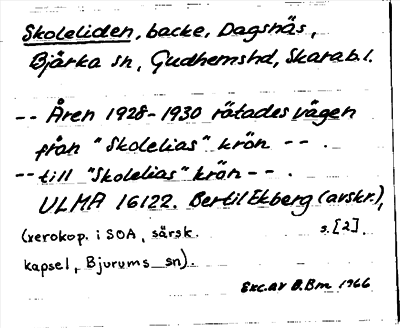 Skoleliden, backe, Dagsnäs,
Bjärka sn, Gudhemshd, Skarab.l.
-- Åren 1928-1930 rätades vägen
från "Skolelias" krön -- .
-- till "Skolelias" krön -- .
ULMA 16122. Bertil Ekberg (avskr.),
(xerokop. i SOA, särsk. s. [2].
kapsel, Bjurums sn).
Exc. av B.Bm 1966